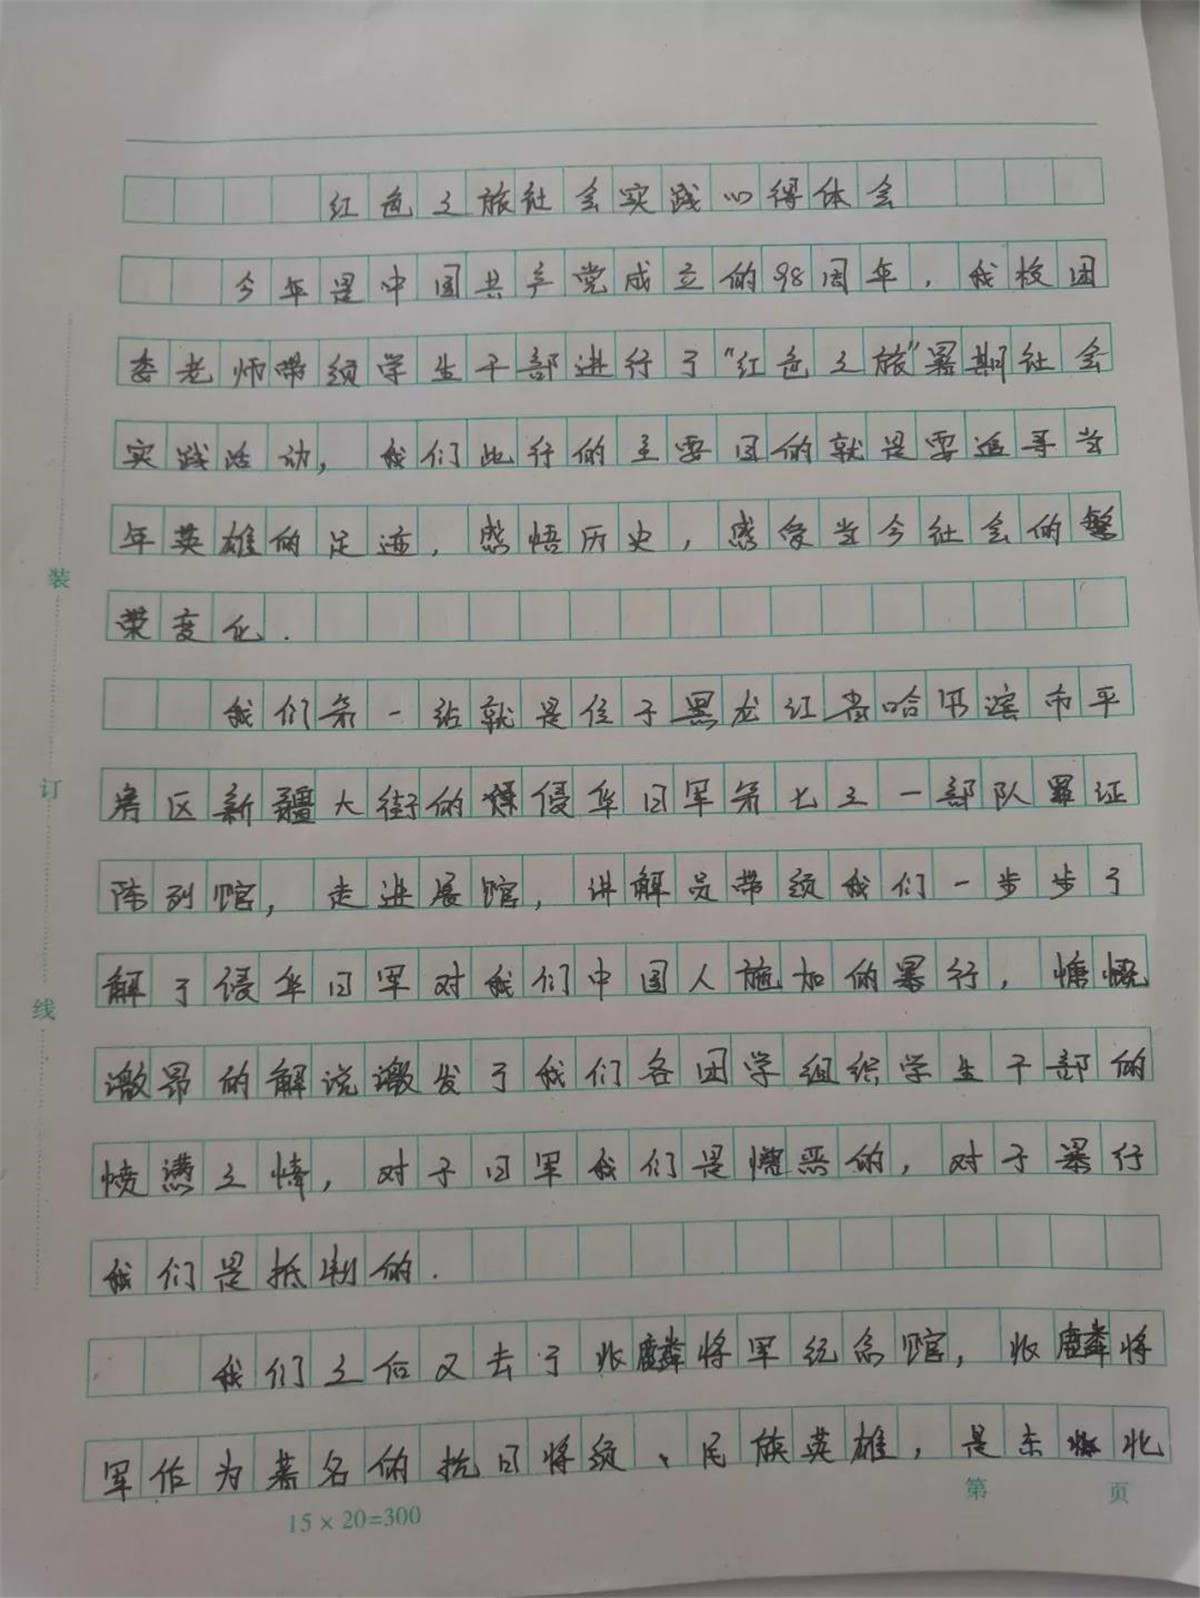 红色之旅社会实践心得体会
今年是中国共产党成立的98周年，我校团
委老师带领学生干部进行了“红色之旅”暑期社会
实践活动，我们此行的主要目的就是要追寻当
年英雄的足迹，感悟历史，感受当今社会的繁
荣变化.
我们第一站就是位于黑龙江省哈尔滨市平
房区新疆大街的侵华日军第七三一部队罪证
陈列馆，走进展馆，讲解员带领我们一步步了
解了侵华日军对我们中国人施加的暴行，慷慨
激昂的解说激发了我们各团学组织学生干部的
愤懑之情，对于日军我们是憎恶的，对于暴行
我们是抵制的.
我们之后又去了兆麟将军纪念馆，兆麟将
军作为著名的抗日将领、民族英雄，是东北
装
订
线
15×20=300
第 页